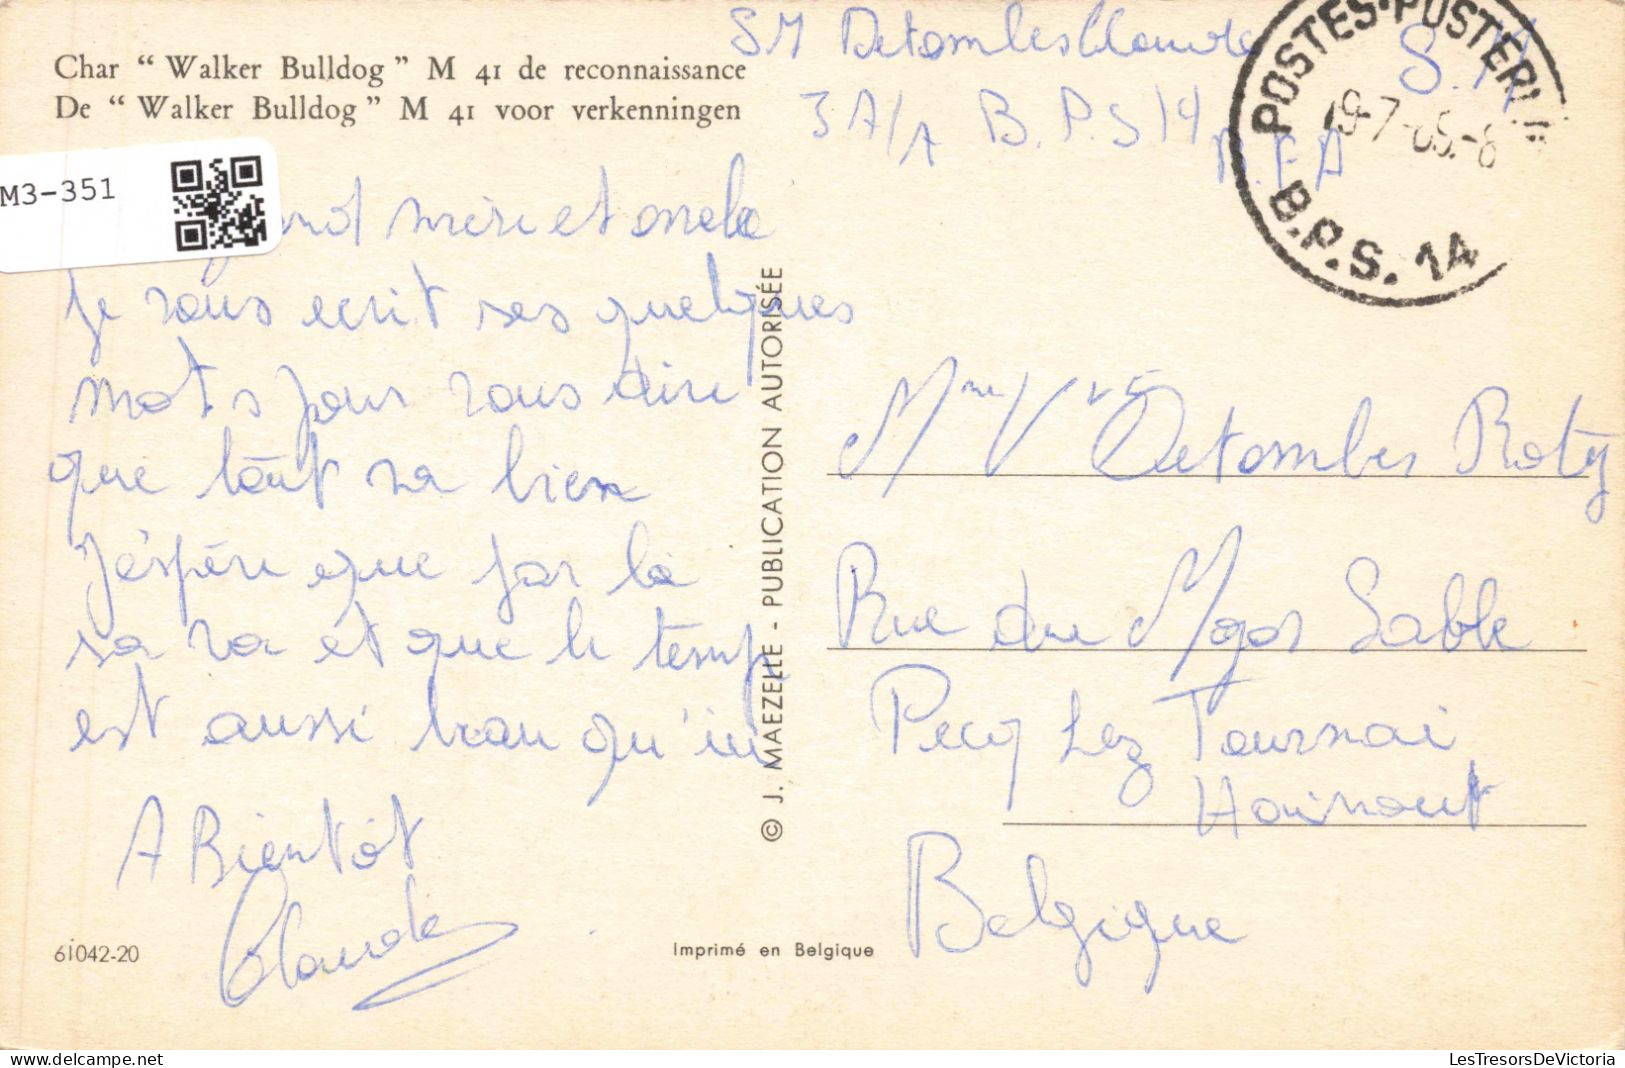 SM Detombes Claude S.M
3 A/A B.P.S 14
POSTES-POSTERIJ
19-7-65.-8
B.P.S. 14
Char “ Walker Bulldog ” M 41 de reconnaissance
De “ Walker Bulldog ” M 41 voor verkenningen
M3-351
mère et oncle
Je vous ecrit ses quelques
mots pour vous dire
que tout va bien
J'espère que par la
sa va et que le temp
est aussi beau qu'ici
A Bientôt
Claude
61042-20
Imprimé en Belgique
© J. MAEZELLE - PUBLICATION AUTORISÉE
Mme Vve Detombes Roty
Rue du Mgos Sable
Pecq Lez Tournai
Hainaut
Belgique
LesTresorsDeVictoria